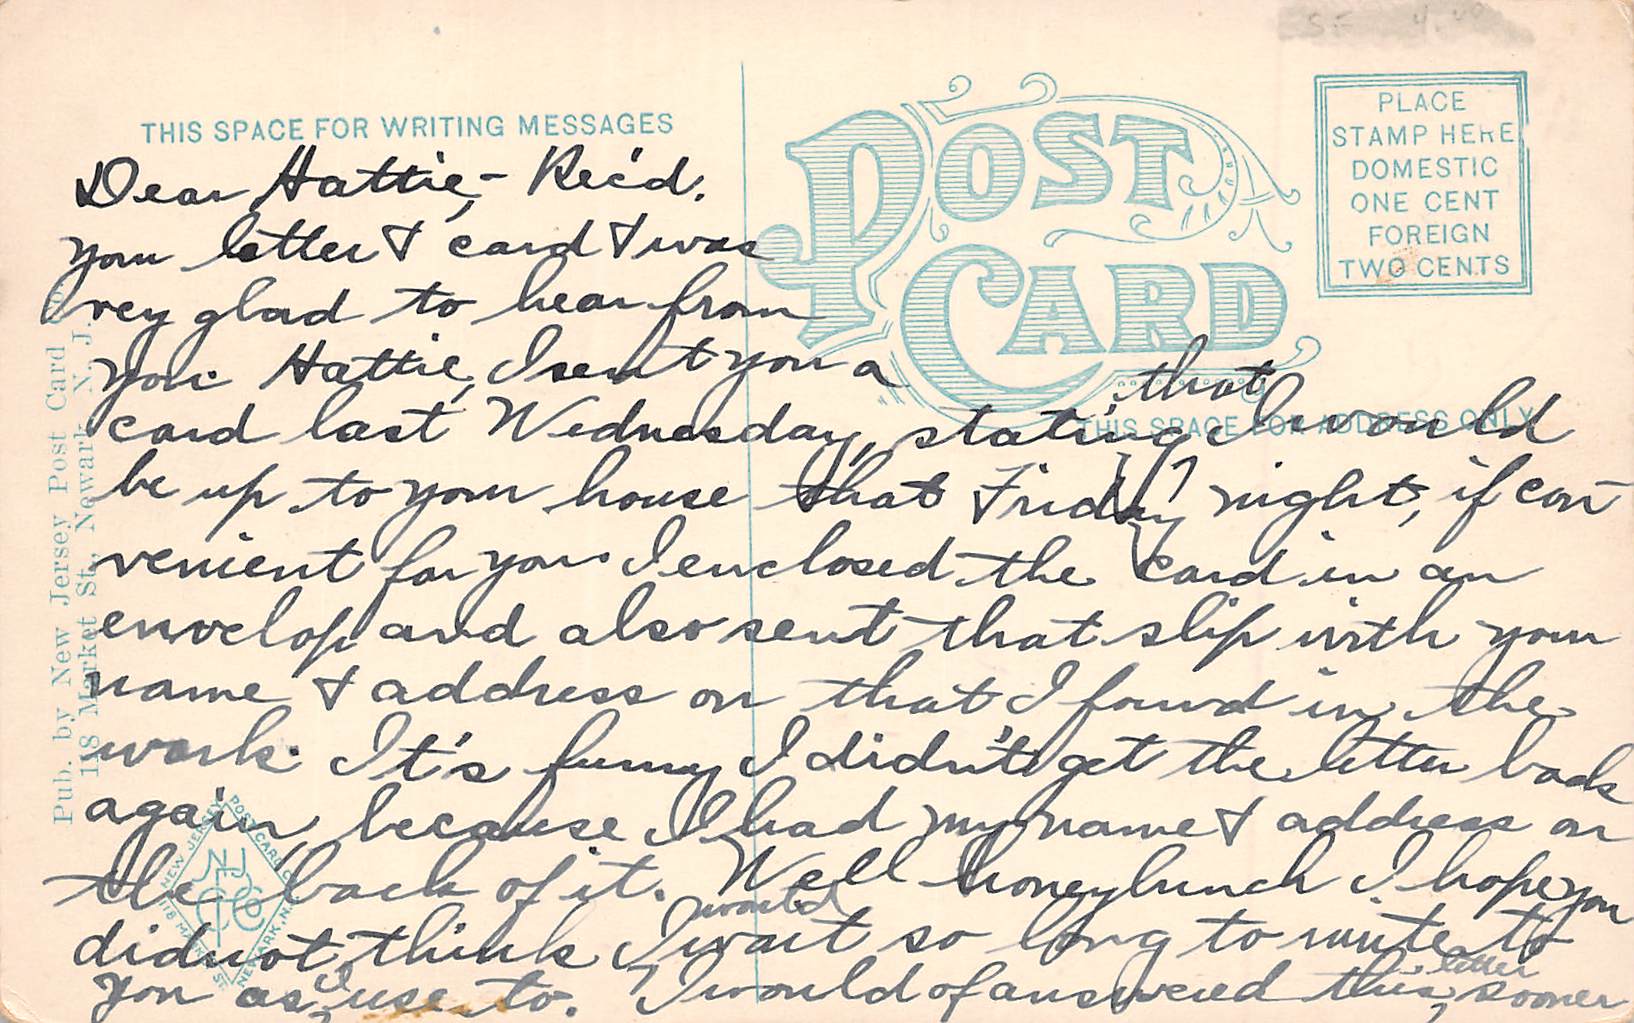 S.F. 4.00
THIS SPACE FOR WRITING MESSAGES
POST
CARD
PLACE
STAMP HERE
DOMESTIC
ONE CENT
FOREIGN
TWO CENTS
THIS SPACE FOR ADDRESS ONLY
Dear Hattie,- Rec'd.
your letter & card & was
very glad to hear from
you. Hattie, I sent you a
card last Wednesday, stating that I would
be up to your house that Friday night, if con
venient for you. I enclosed the card in an
envelop and also sent that slip with your
name & address on that I found in the
work. It's funny I didn't get the letter back
again, because I had my name & address on
the back of it. Well honeybunch I hope you
did not think I would wait so long to write to
you as I use to. I would of answered this letter, sooner
Pub. by New Jersey Post Card Co.
118 Market St., Newark, N. J.
NEW JERSEY POST CARD CO.
118 MARKET ST.
NEWARK, N.J.